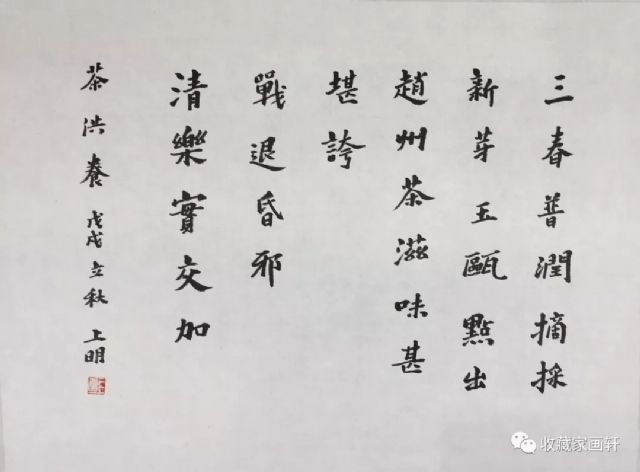 三春普潤摘採
新芽玉甌點出
趙州茶滋味甚
堪誇
戰退昏邪
清樂實交加
茶洪養戊戌立秋上明
收藏家画轩